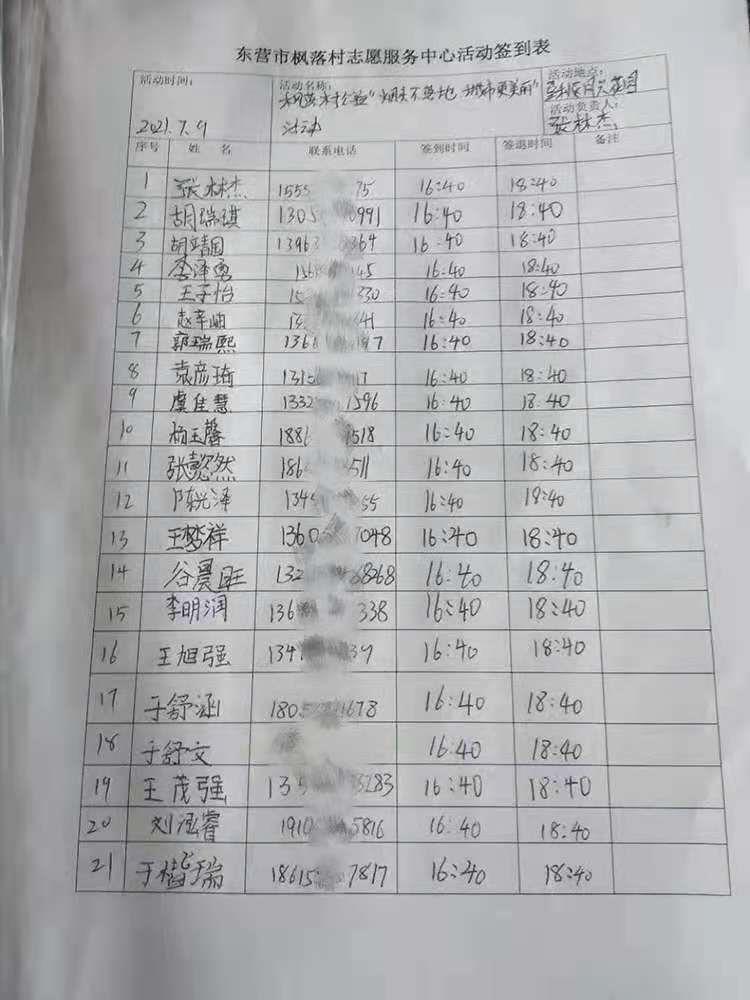 东营市枫落村志愿服务中心活动签到表
活动时间: 活动名称: 活动地点:
枫落村公益“烟头不落地 城市更美丽”
活动 活动负责人:
2021.7.9 张林杰
序号 姓 名 联系电话 签到时间 签退时间 备注
1 张林杰 1555 75 16:40 18:40
2 胡瑞琪 1305 0991 16:40 18:40
3 胡靖国 1396 364 16:40 18:40
4 李泽 156 45 16:40 18:40
5 王子怡 15 330 16:40 18:40
6 赵 13 41 16:40 18:40
7 郭瑞熙 136 7 16:40 18:40
8 袁彦琦 1315 7 16:40 18:40
9 虞佳慧 1332 1596 16:40 18:40
10 杨玉馨 188 518 16:40 18:40
11 张懿然 186 511 16:40 18:40
12 陈光泽 134 55 16:40 18:40
13 王梦祥 1360 7048 16:40 18:40
14 谷晨旺 132 8268 16:40 18:40
15 李明润 136 338 16:40 18:40
16 王旭强 134 39 16:40 18:40
17 于舒涵 1805 1678 16:40 18:40
18 于舒文 16:40 18:40
19 王茂强 135 3283 16:40 18:40
20 刘涵睿 1910 5816 16:40 18:40
21 于楷瑞 18615 7817 16:40 18:40